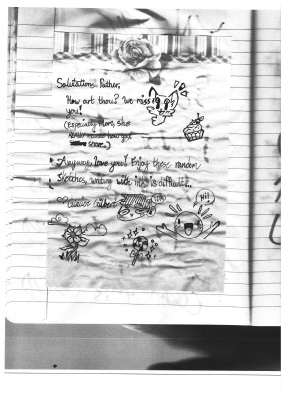 Salutations Father,
How art thou? We miss
you!
(Especially Mom, she
misses how you
snore..)
Anyway, love you! Enjoy these random
sketches, writing with this is difficult..
Hi!